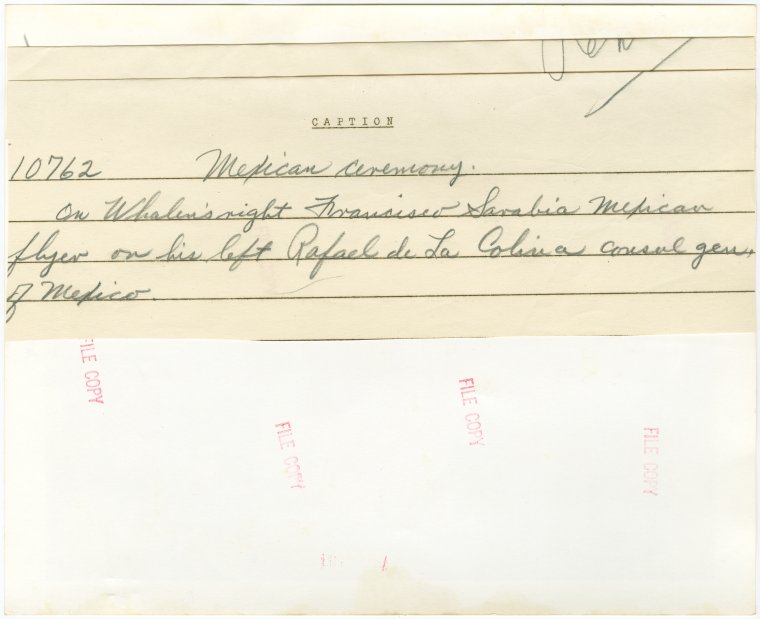 CAPTION
10762 Mexican ceremony.
On Whalen's right Francisco Sarabia Mexican
flyer on his left Rafael de La Colina consul gen.
of Mexico.
FILE COPY
FILE COPY
FILE COPY
FILE COPY